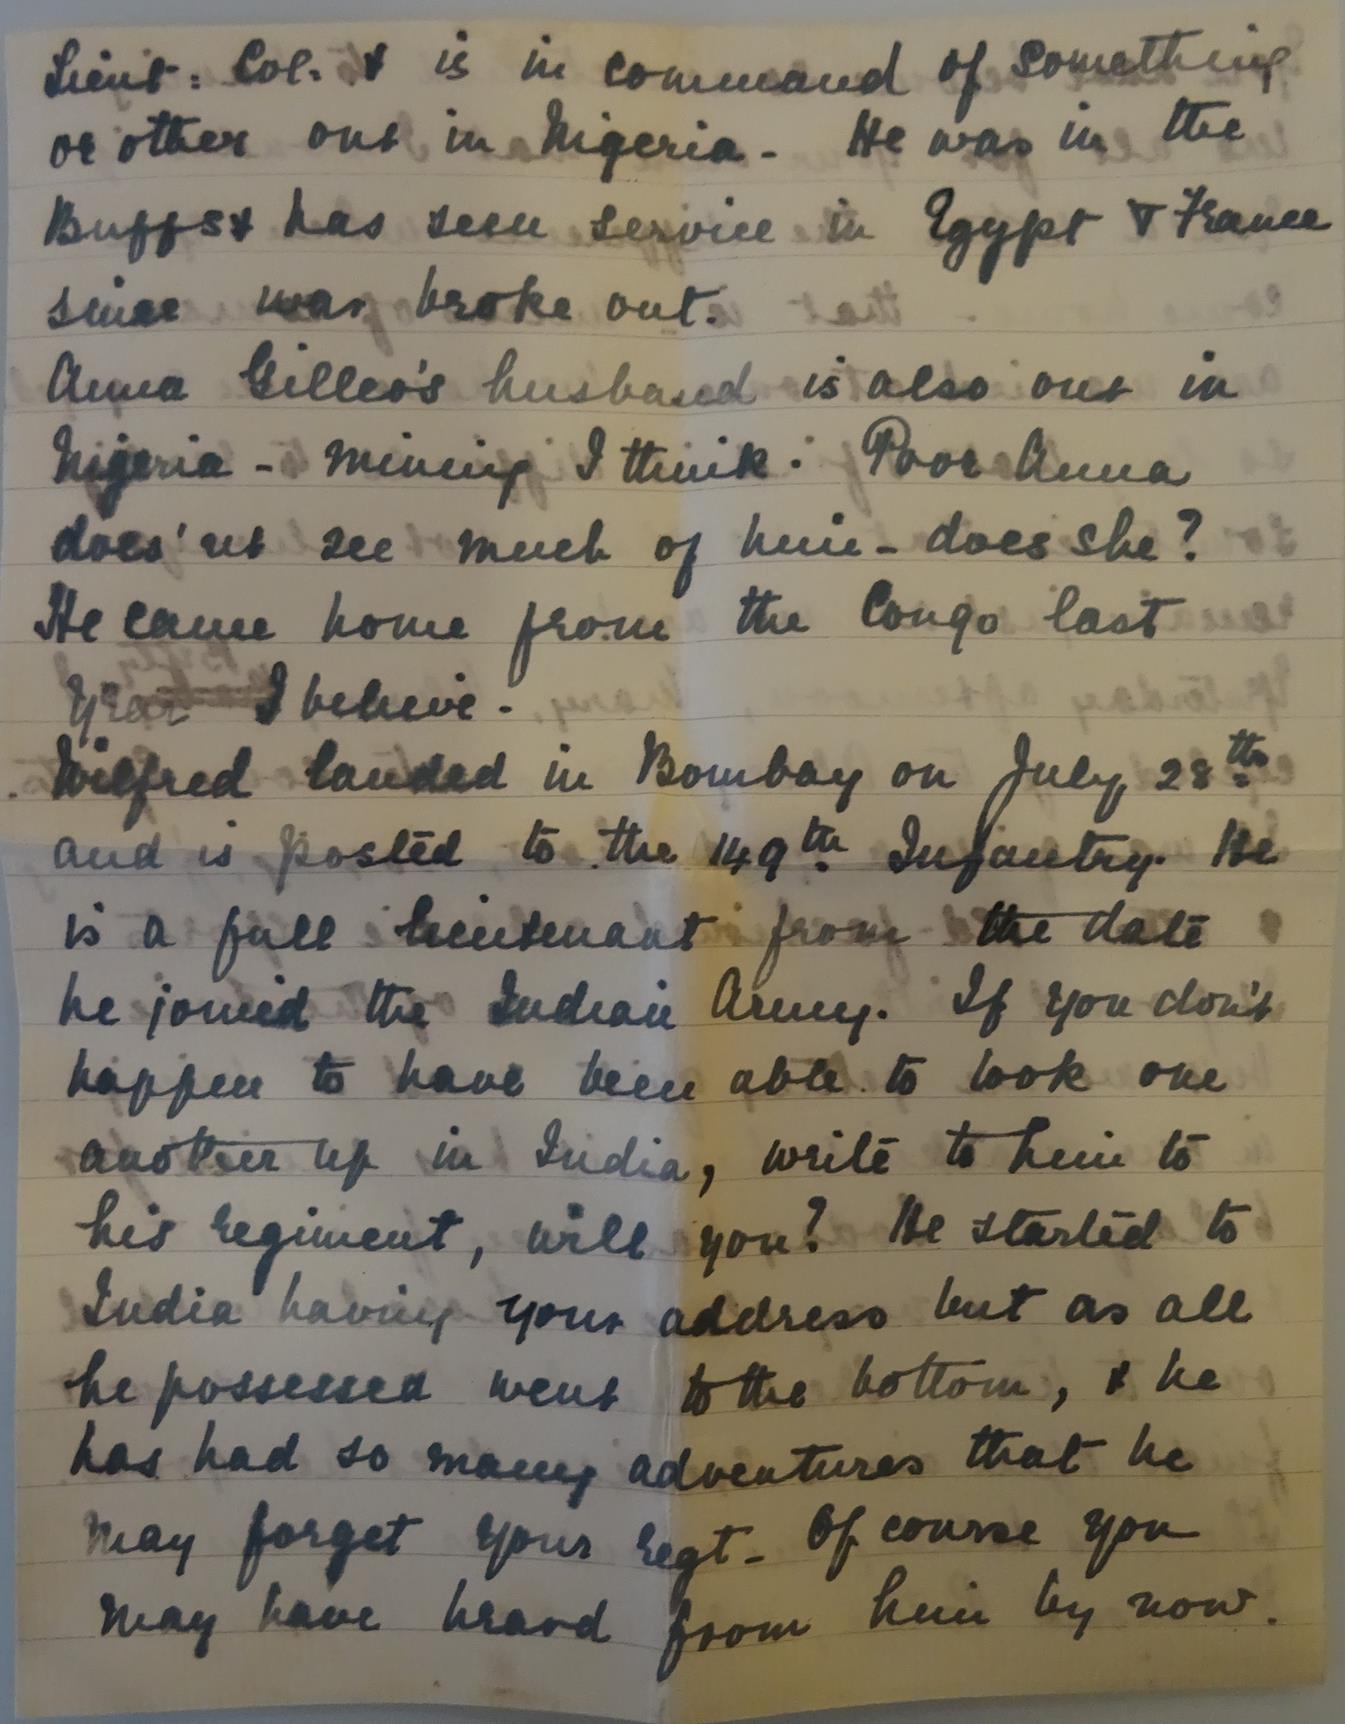 Lieut: Col. & is in command of something
or other out in Nigeria - He was in the
Buffs & has seen service in Egypt & France
since war broke out.
Anna Gilleo's husband is also out in
Nigeria - mining I think. Poor Anna
does'nt see much of him - does she?
He came home from the Congo last
year I believe -
Wilfred landed in Bombay on July 28th
and is posted to the 149th Infantry. He
is a full lieutenant from the date
he joined the Indian Army. If you don't
happen to have been able to look one
another up in India, write to him to
his regiment, will you? He started to
India having your address but as all
he possessed went to the bottom, & he
has had so many adventures that he
may forget your regt - Of course you
may have heard from him by now.